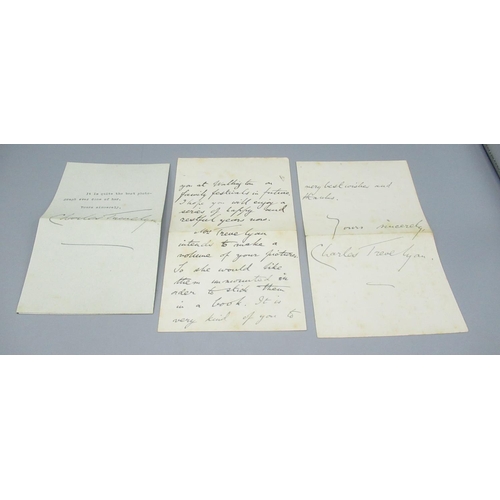 It is quite the best photo-
graph
Yours sincerely,
Charles Trevelyan
you at Wallington on
family festivals in future
I hope you will enjoy a
series of happy and
restful years now.
Mrs Trevelyan
intends to make a
volume of your pictures
So she would like
them unmounted in
order to stick them
in a book. It is
very kind of you to
very best wishes and
thanks.
Yours sincerely
Charles Trevelyan.